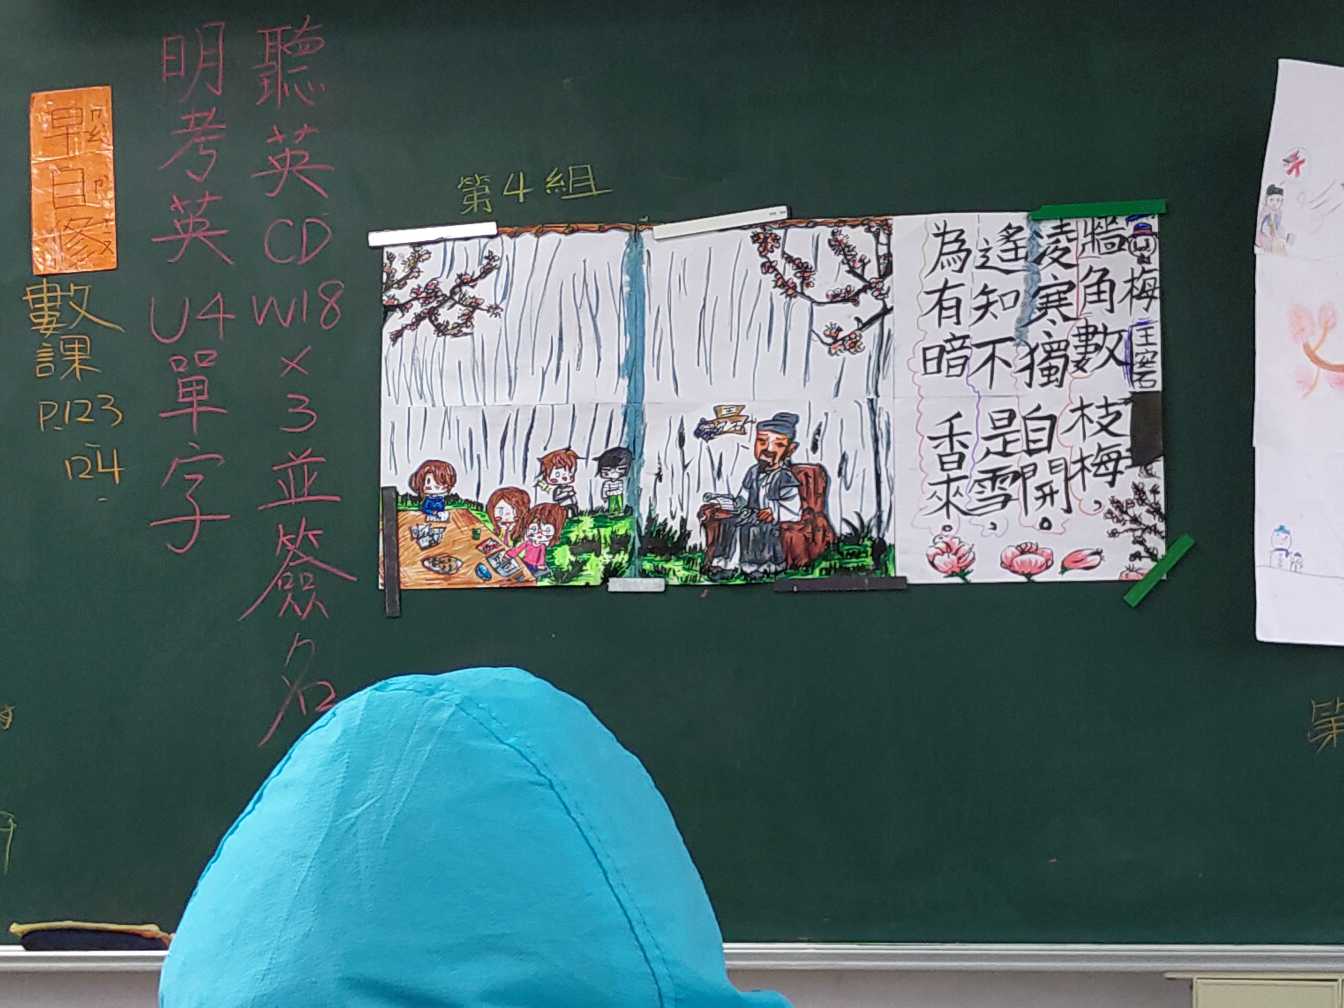 第4組
梅
王安石
牆角數枝梅，
淩寒獨自開。
遙知不是雪，
為有暗香來。
聽英CD W18×3並簽名
明考英U4單字
早自修
數課
P.123
124
第